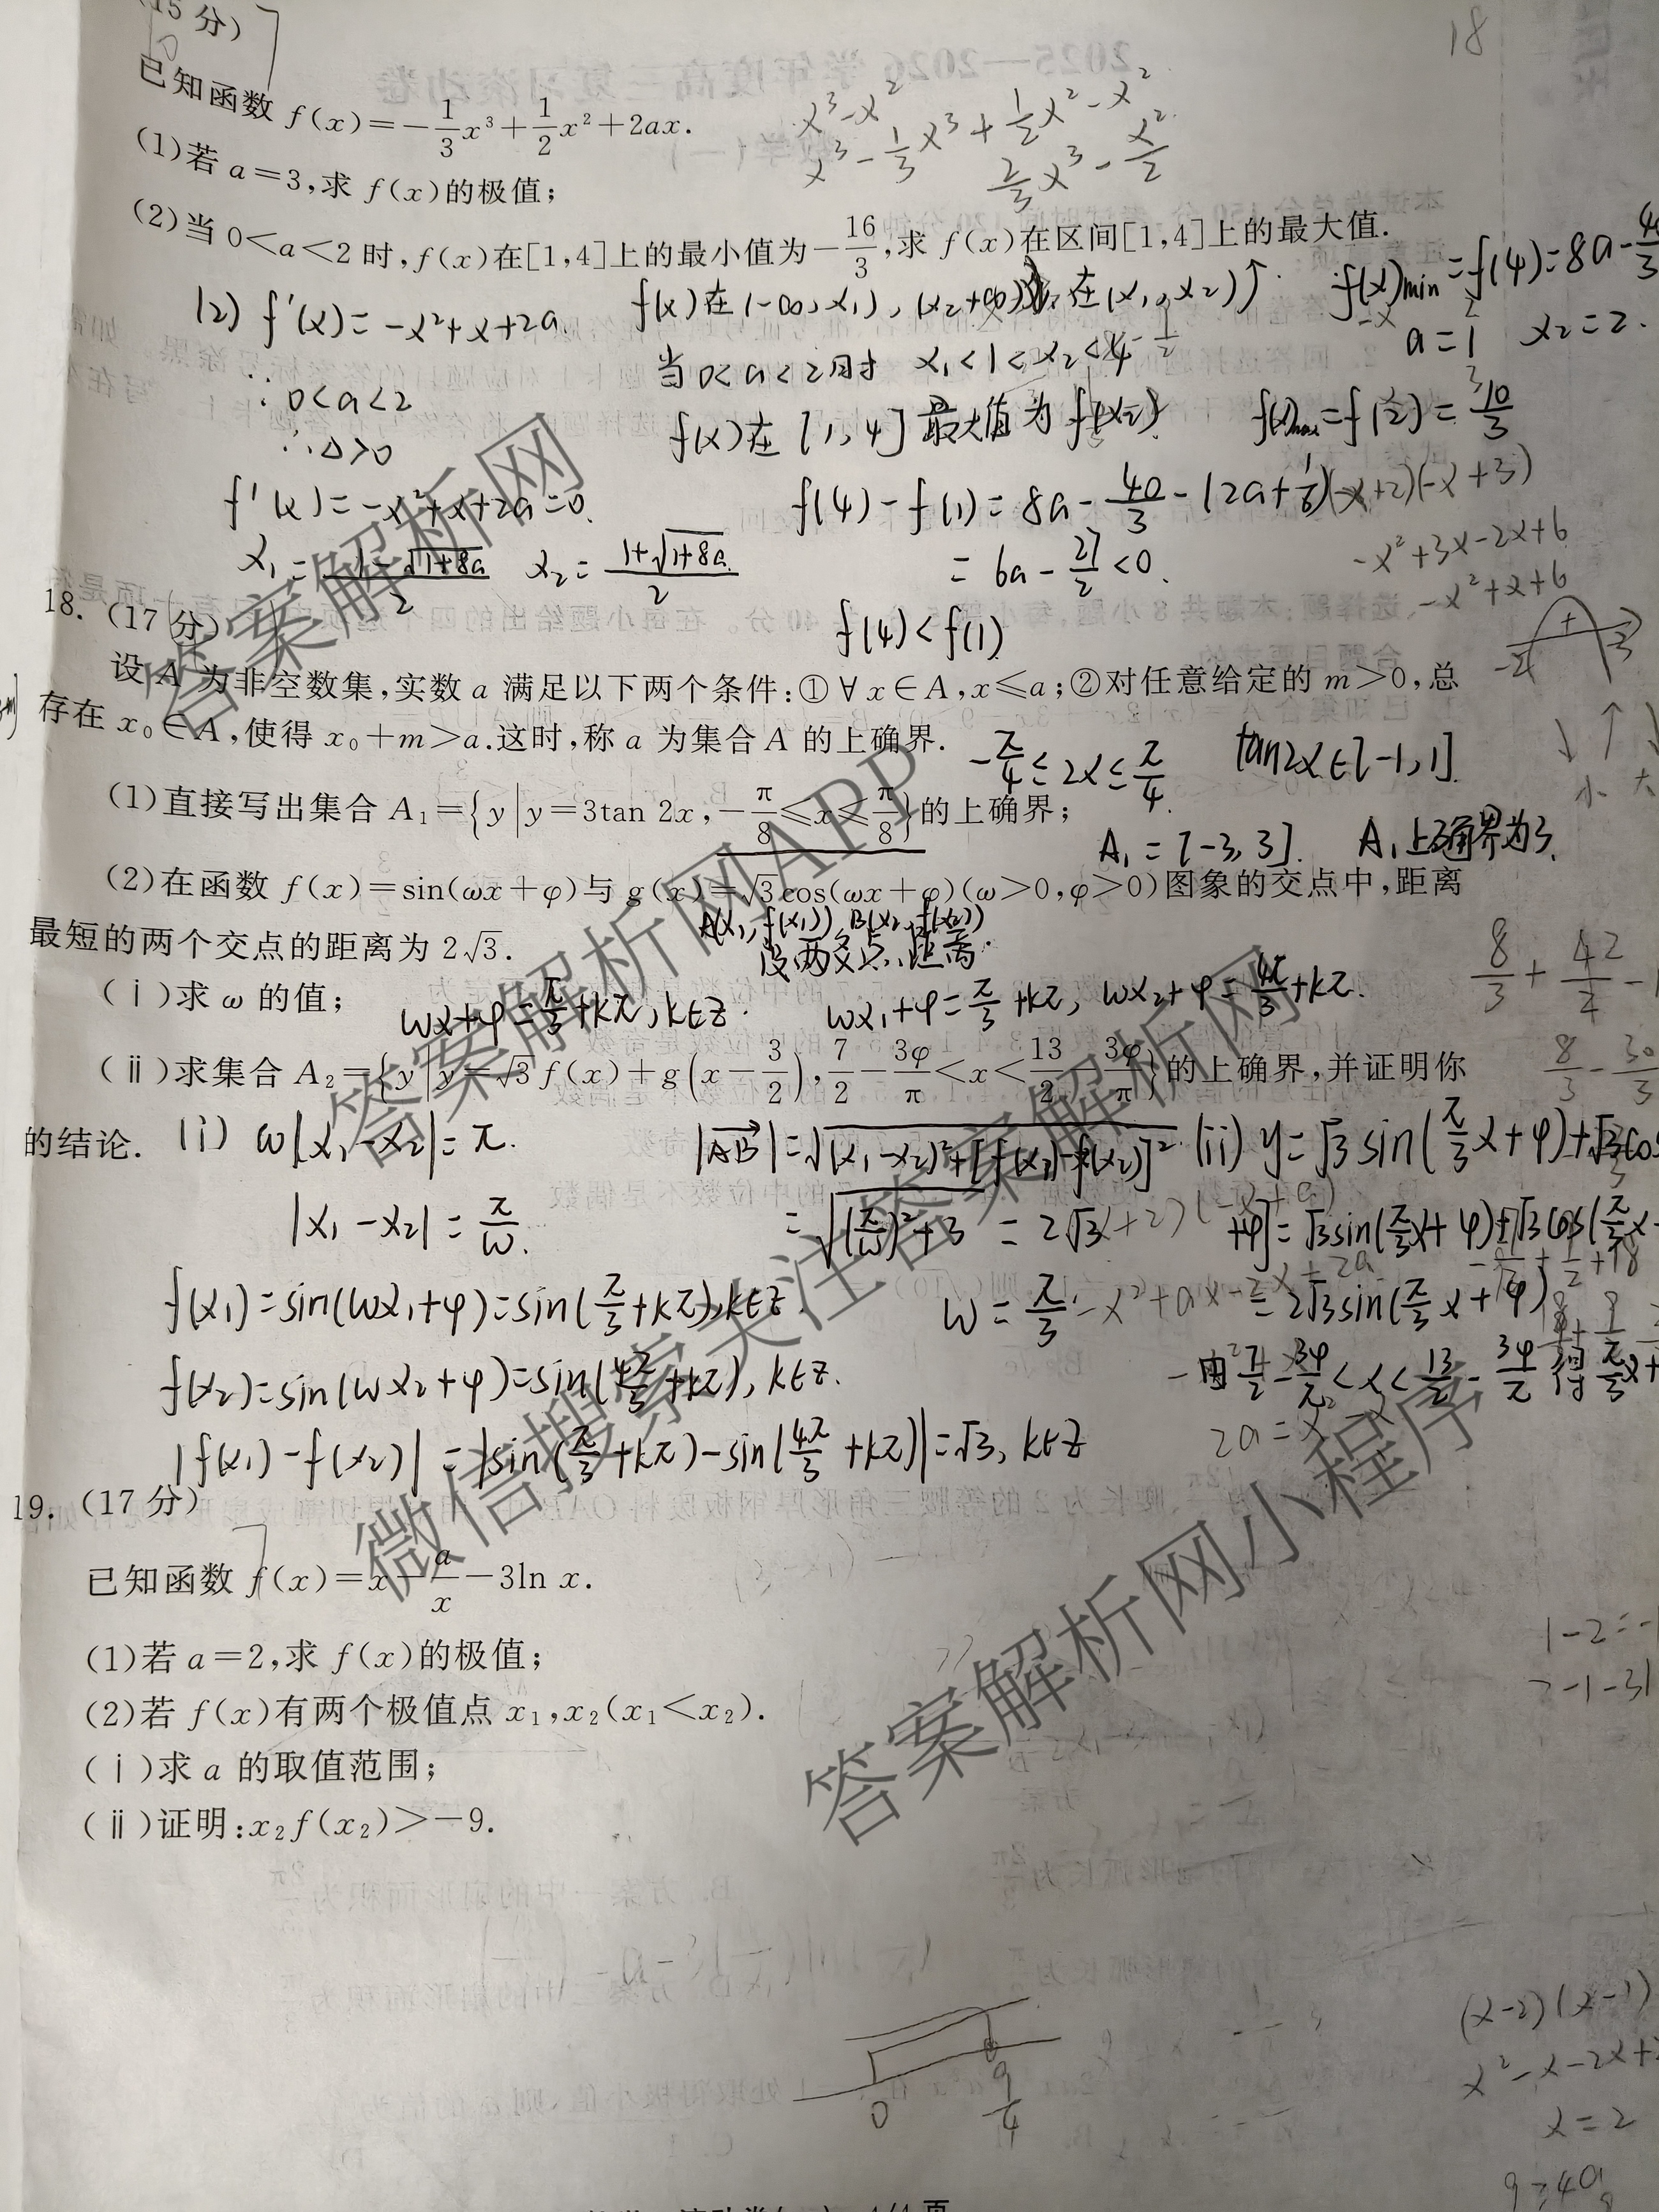 15 分)
已知函数 f(x)=-1/3x³+1/2x²+2ax.
(1)若 a=3,求 f(x)的极值;
(2)当 0<a<2 时,f(x)在[1,4]上的最小值为-16/3,求 f(x)在区间[1,4]上的最大值.
18
x³-x²
x³-1/3x³+1/2x²-x²
2/3x³-x²/2
(2) f'(x)=-x²+x+2a
∵0<a<2
∴Δ>0
f'(x)=-x²+x+2a=0.
x₁=(1-√(1+8a))/2 x₂=(1+√(1+8a))/2
f(x)在(-∞,x₁),(x₂+∞)↓,在(x₁,x₂)↑.
当0<a<2时 x₁<1<x₂<4
f(x)在[1,4]最大值为f(x₂)
f(4)-f(1)=8a-40/3-(2a+1/6)
=6a-27/2<0.
f(4)<f(1)
f(x)min=f(4)=8a-40/3
a=1 x₂=2.
f(x)max=f(2)=10/3
(-x+2)(-x+3)
-x²+3x-2x+6
-x²+x+6
-2 + 3
小 大
18.(17 分)
设 A 为非空数集,实数 a 满足以下两个条件:①∀x∈A,x≤a;②对任意给定的 m>0,总
存在 x₀∈A,使得 x₀+m>a.这时,称 a 为集合 A 的上确界.
(1)直接写出集合 A₁={y|y=3tan 2x,-π/8≤x≤π/8}的上确界;
-π/4≤2x≤π/4 tan2x∈[-1,1].
A₁=[-3,3]. A₁上确界为3.
(2)在函数 f(x)=sin(ωx+φ)与 g(x)=√3cos(ωx+φ)(ω>0,φ>0)图象的交点中,距离
最短的两个交点的距离为 2√3.
A(x₁,f(x₁)),B(x₂,f(x₂))
设两交点距离.
(ⅰ)求 ω 的值;
ωx+φ=π/3+kπ,k∈Z. ωx₁+φ=π/3+kπ, ωx₂+φ=4π/3+kπ.
(ⅱ)求集合 A₂={y|y=√3f(x)+g(x-3/2),7/2-3φ/π<x<13/2-3φ/π}的上确界,并证明你
的结论.
(i) ω|x₁-x₂|=π.
|x₁-x₂|=π/ω.
f(x₁)=sin(ωx₁+φ)=sin(π/3+kπ),k∈Z.
f(x₂)=sin(ωx₂+φ)=sin(4π/3+kπ),k∈Z.
|f(x₁)-f(x₂)|=|sin(π/3+kπ)-sin(4π/3+kπ)|=√3,k∈Z
|AB|=√((x₁-x₂)²+[f(x₁)-f(x₂)]²)
=√((π/ω)²+3)=2√3
ω=π/3
(ii) y=√3sin(π/3x+φ)+√3cos
+φ]=√3sin(π/3x+φ)+√3cos(π/3x-
=2√3sin(π/3x+φ)
由7/2-3φ/π<x<13/2-3φ/π得π/3x+
-x²+ax-2x+2a
19.(17 分)
已知函数 f(x)=x-a/x-3ln x.
(1)若 a=2,求 f(x)的极值;
(2)若 f(x)有两个极值点 x₁,x₂(x₁<x₂).
(ⅰ)求 a 的取值范围;
(ⅱ)证明:x₂f(x₂)>-9.
1-2=-1
0 9/4
(x-2)(x-1)
x²-x-2x+2
x=2
答案解析网
答案解析网APP
微信搜索关注答案解析网
答案解析网小程序